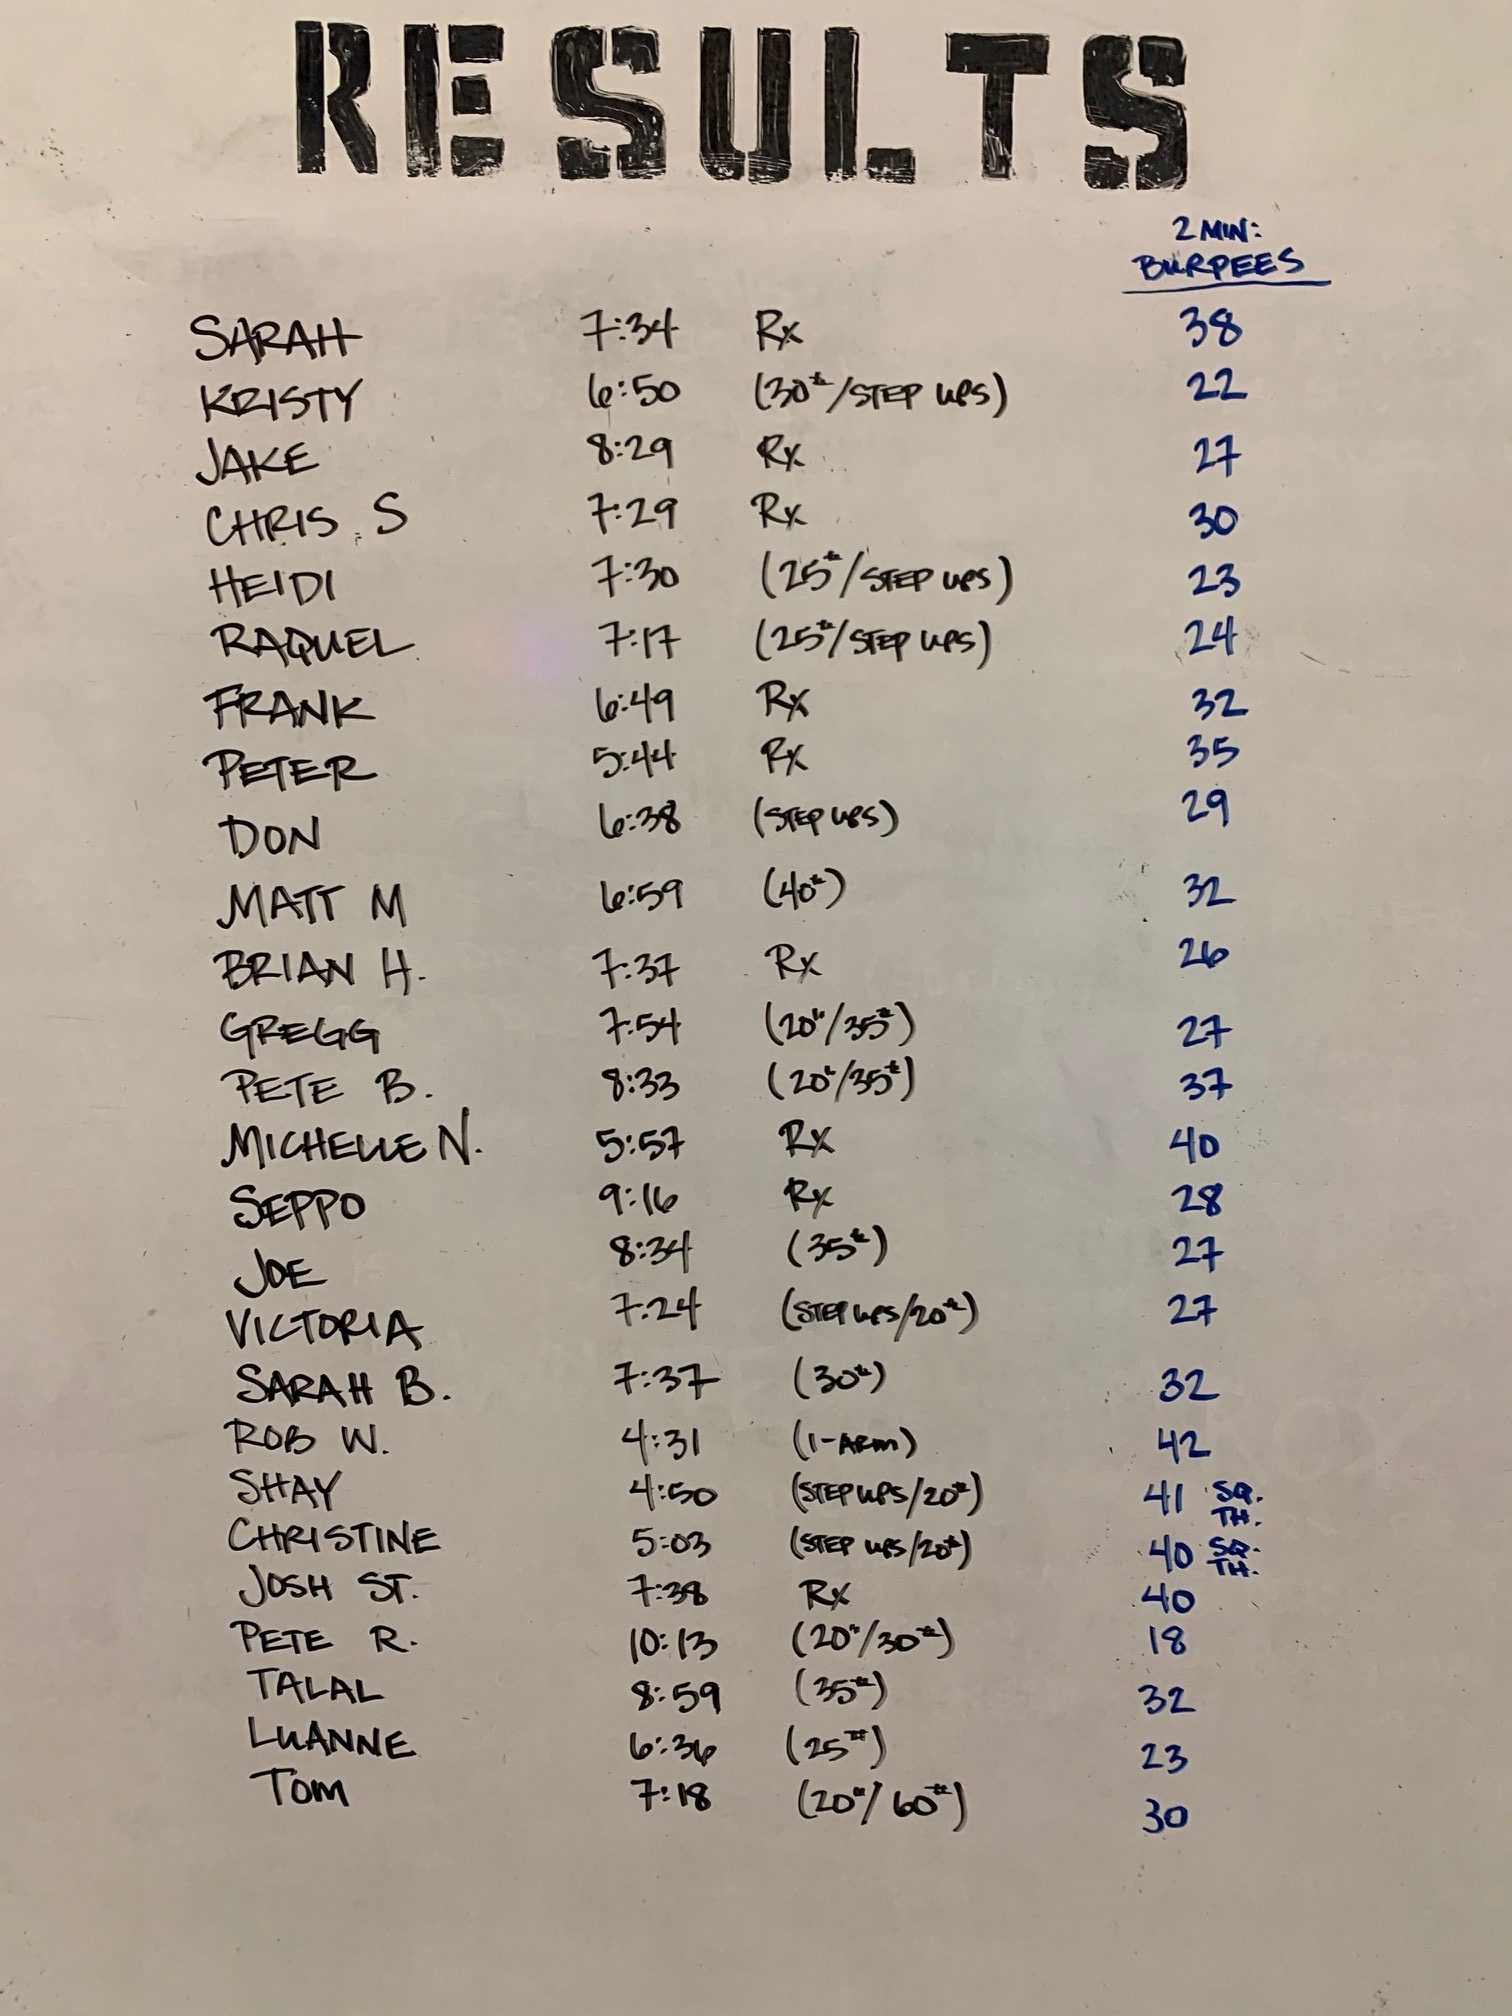 RESULTS
2 MIN:
BURPEES
SARAH 7:34 Rx 38
KRISTY 6:50 (30#/STEP UPS) 22
JAKE 8:29 Rx 27
CHRIS S 7:29 Rx 30
HEIDI 7:30 (25#/STEP UPS) 23
RAQUEL 7:17 (25#/STEP UPS) 24
FRANK 6:49 Rx 32
PETER 5:44 Rx 35
DON 6:38 (STEP UPS) 29
MATT M 6:59 (40#) 32
BRIAN H. 7:37 Rx 26
GREGG 7:54 (20"/35#) 27
PETE B. 8:33 (20"/35#) 37
MICHELLE N. 5:57 Rx 40
SEPPO 9:16 Rx 28
JOE 8:34 (35#) 27
VICTORIA 7:24 (STEP UPS/20#) 27
SARAH B. 7:37 (30#) 32
ROB W. 4:31 (1-ARM) 42
SHAY 4:50 (STEP UPS/20#) 41 SQ. TH.
CHRISTINE 5:03 (STEP UPS/20#) 40 SQ. TH.
JOSH ST. 7:38 Rx 40
PETE R. 10:13 (20"/30#) 18
TALAL 8:59 (35#) 32
LUANNE 6:36 (25#) 23
TOM 7:18 (20"/60#) 30